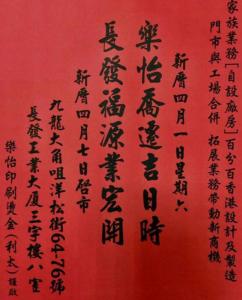 家族業務[自設廠房]百分百香港設計及製造
門市與工場合併 拓展業務帶動新商機
新曆四月一日星期六
樂怡喬遷吉日時
長發福源業宏開
新曆四月七日啓市
九龍大角咀洋松街64-76號
長發工業大厦三字樓八室
樂怡印刷燙金(利太)謹啟